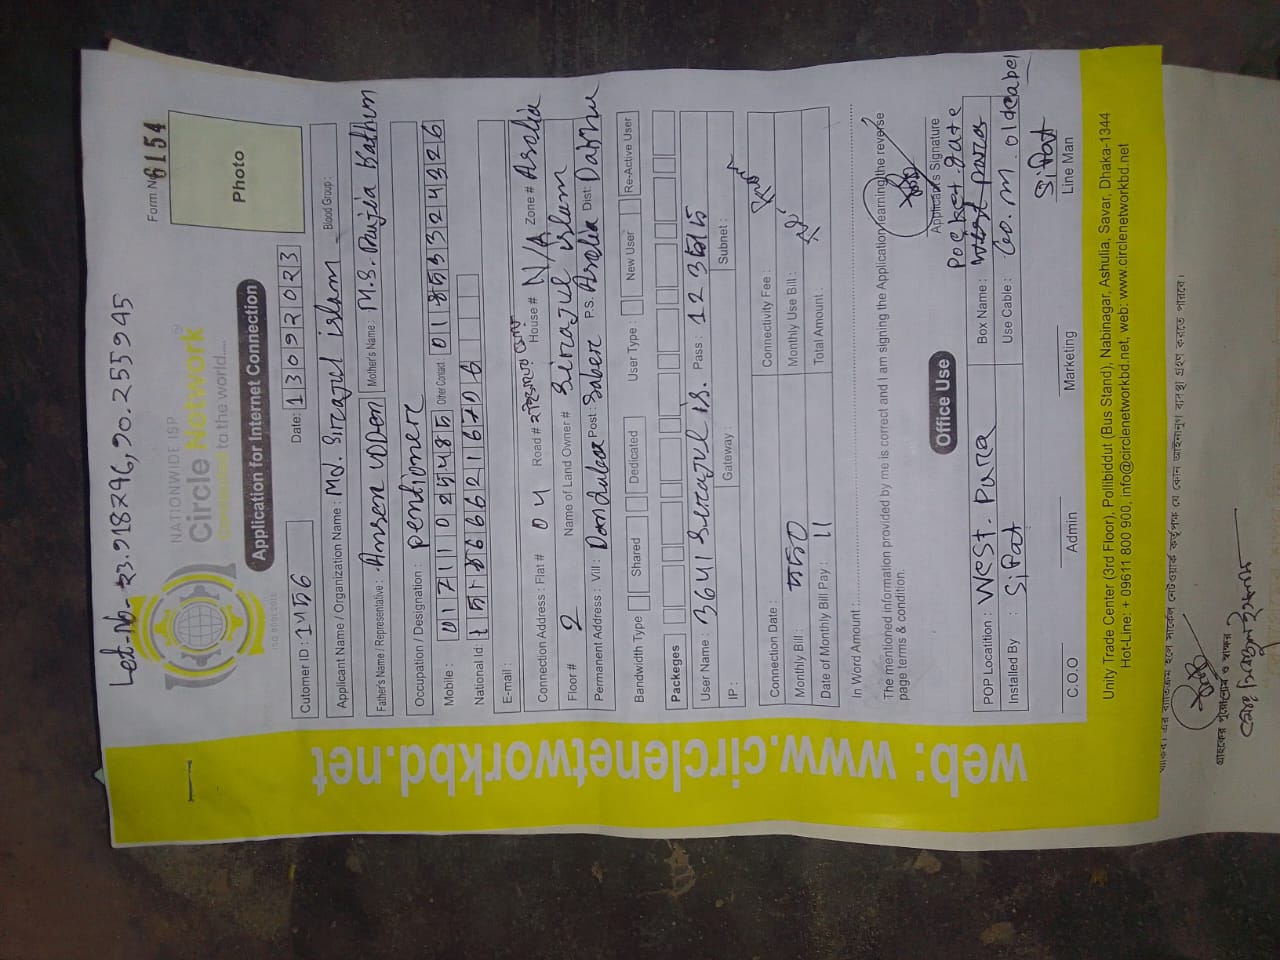 Let-No-23.918746,90.255945
NATIONWIDE ISP
Circle Network
to the world....
ISO 9001:2015
Form No. 6154
Photo
Application for Internet Connection
Cutomer ID : 1456 Date: 13092023
Applicant Name / Organization Name : Md. Sirazul islam Blood Group :
Father's Name / Representative : Ansen udden Mother's Name : M.S. Kathun
Occupation / Designation : pentionere
Mobile : 01711025485 Other Contact: 01853324326
National Id :
E-mail :
Connection Address : Flat # 04 Road # House # N/A Zone # Asolia
Floor # 2 Name of Land Owner # Sirazul islam
Permanent Address : Vill : Post : Saber P.S. Asolia Dist:
Bandwidth Type Shared Dedicated User Type : New User Re-Active User
Packeges
User Name : 3641 Serazul is. Pass : 12 3
IP : Gateway : Subnet :
Connection Date : Connectivity Fee :
Monthly Bill : Monthly Use Bill :
Date of Monthly Bill Pay : 11 Total Amount :
In Word Amount :
The mentioned information provided by me is correct and I am signing the Application learning the reverse
page terms & condition.
Applicant's Signature
Office Use
Pocket gate
POP Locatition : West. Para Box Name : West para
Installed By : Sifat Use Cable : old cabel
Sifat
C.O.O Admin Marketing Line Man
Unity Trade Center (3rd Floor), Pollibiddut (Bus Stand), Nabinagar, Ashulia, Savar, Dhaka-1344
Hot-Line: + 09611 800 900, info@circlenetworkbd.net, web: www.circlenetworkbd.net
web: www.circlenetworkbd.net
হলে সার্কেল নেটওয়ার্ক কর্তৃপক্ষ যে কোন আইনানুগ ব্যবস্থা গ্রহণ করতে পারবে।
গ্রাহকের পূর্ণনাম ও স্বাক্ষর